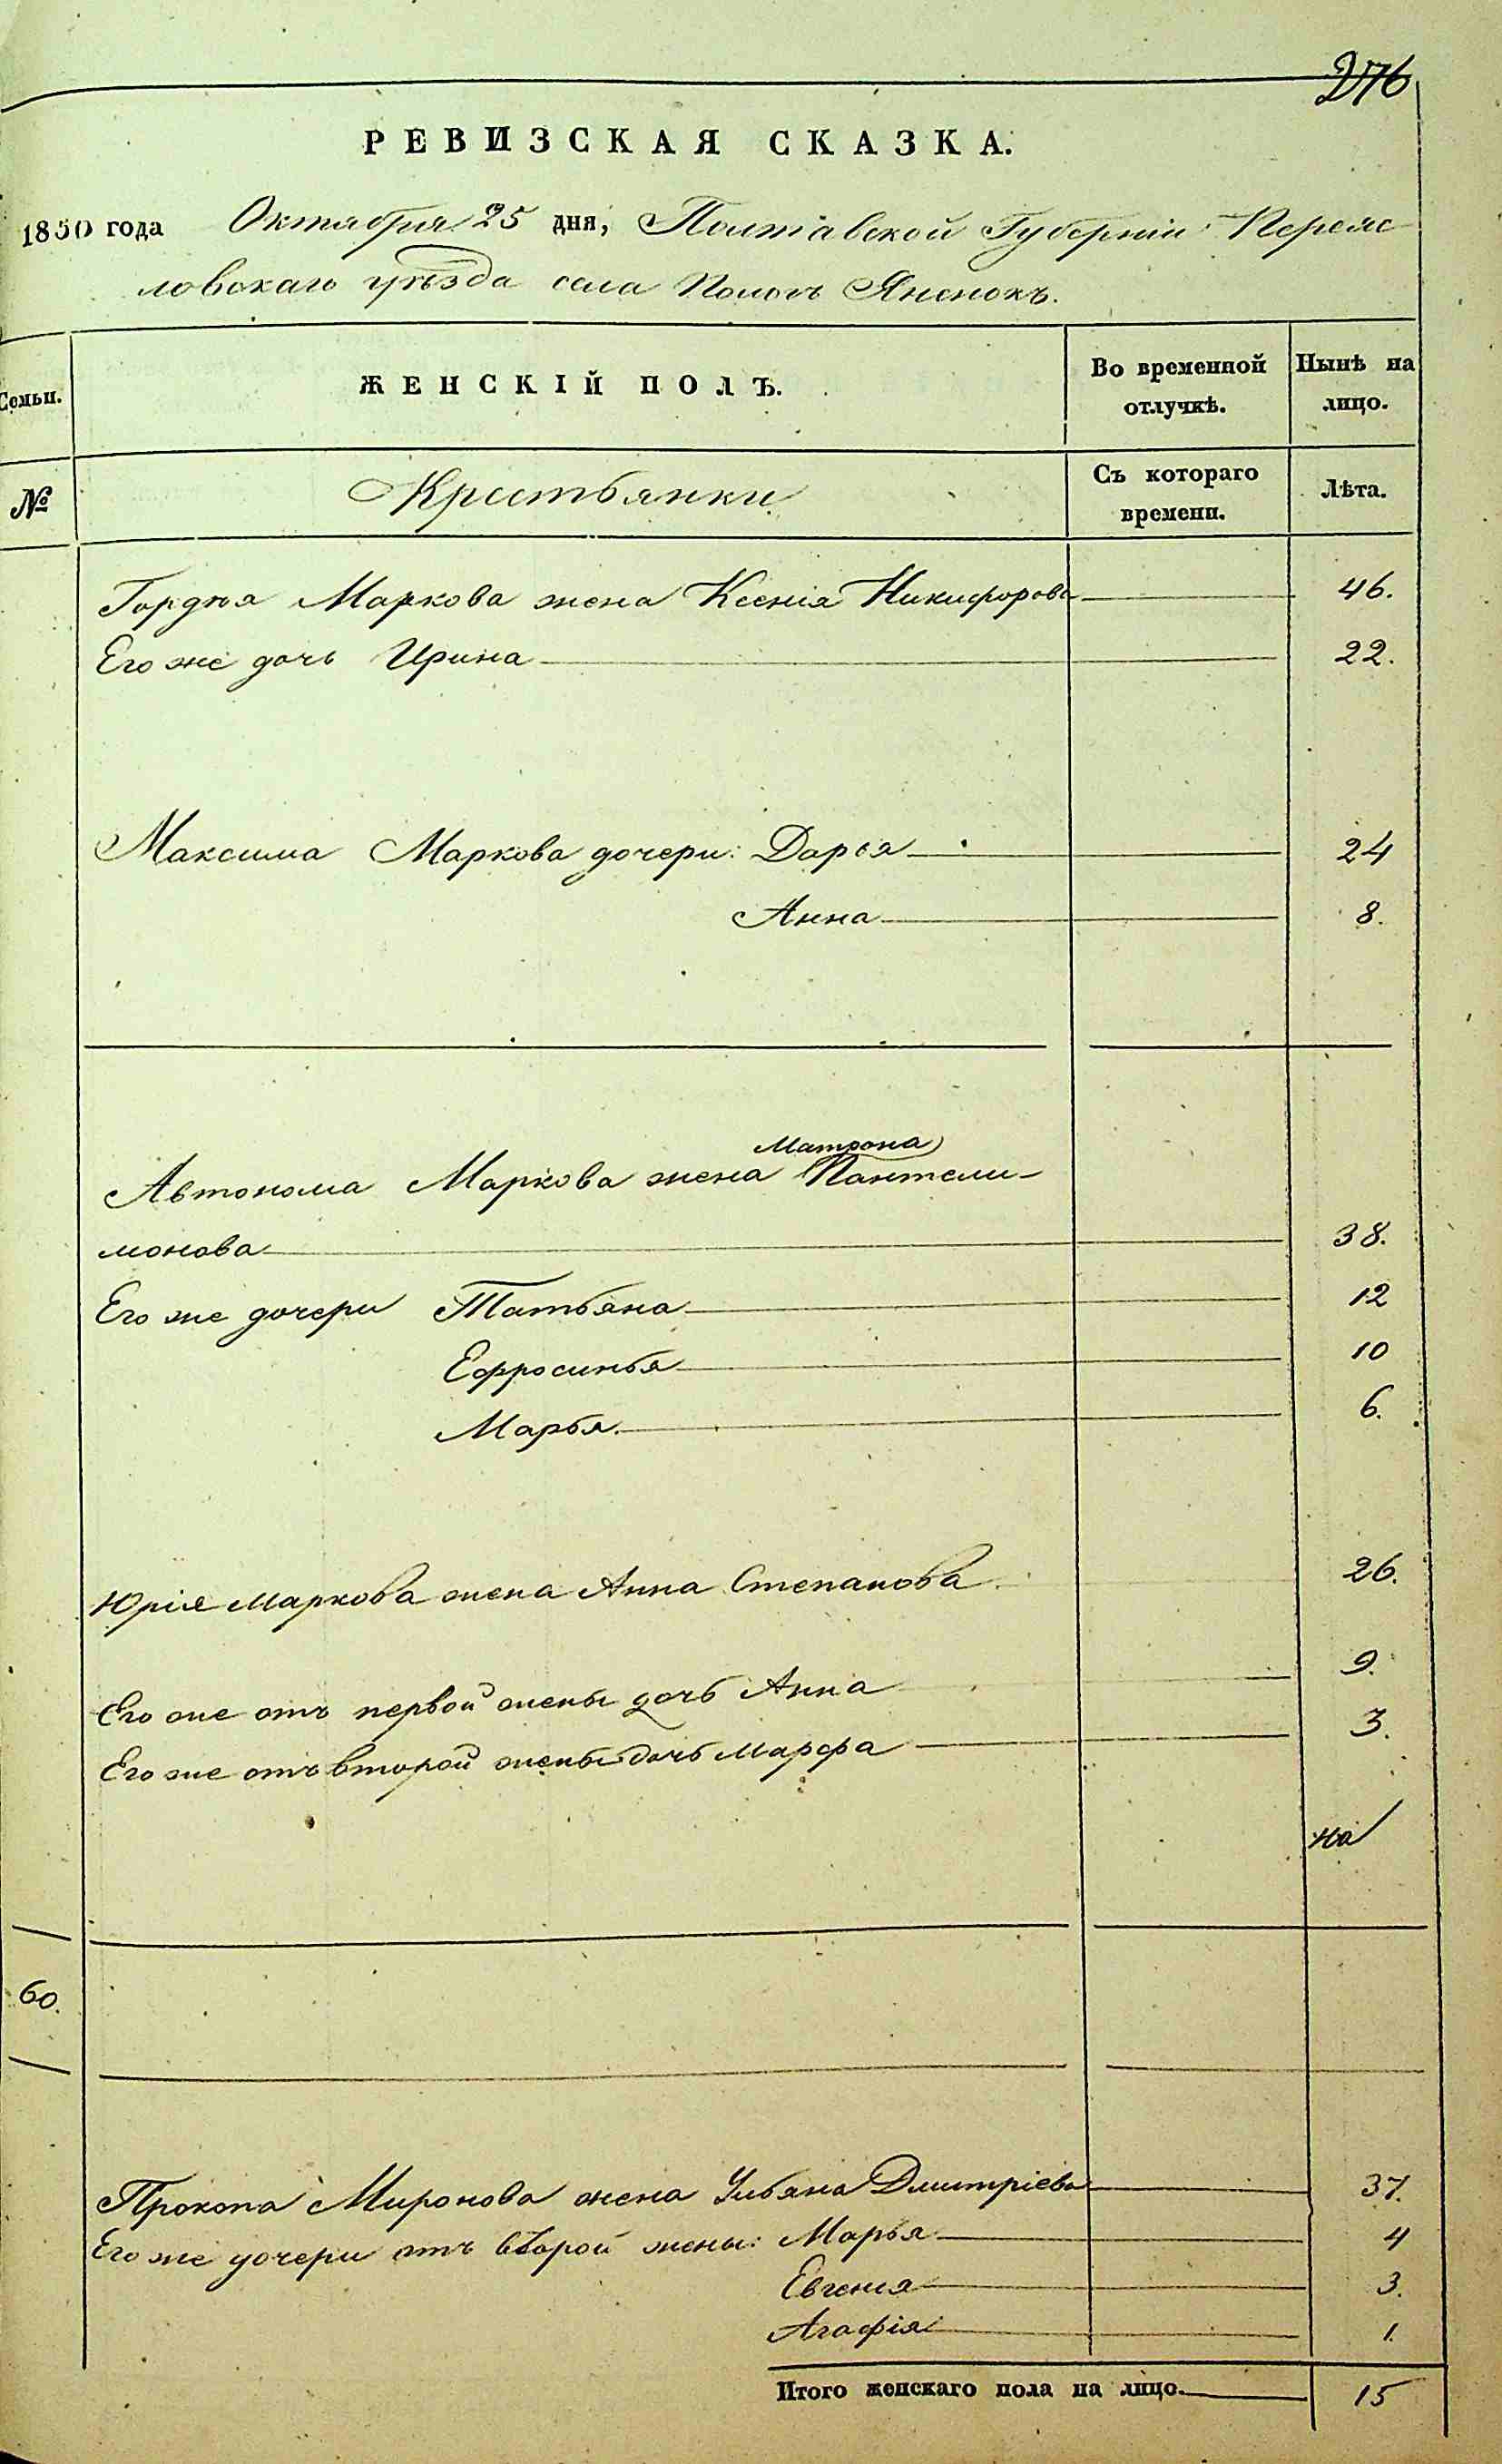 276
РЕВИЗСКАЯ СКАЗКА.
1850 года Октября 25 дня, Полтавской Губерніи Переяс
ловскаго уѣзда села Помокъ Яненокъ.
Семьи. ЖЕНСКІЙ ПОЛЪ. Во временной отлучкѣ. Нынѣ на лицо.
№ Крестьянки Съ котораго времени. Лѣта.
Гордѣя Маркова жена Ксенія Никифорова 46.
Его же дочь Ирина 22.
Максима Маркова дочери: Дарья 24
Анна 8.
Матрона
Автонома Маркова жена Пантели-
монова 38.
Его же дочери Татьяна 12
Ефросинья 10
Марья 6.
Юрія Маркова жена Анна Степанова 26.
Его же отъ первой жены дочь Анна 9.
Его же отъ второй жены дочь Марфа 3.
на
60.
Прокопа Миронова жена Ульяна Дмитріева 37.
Его же дочери отъ второй жены: Марья 4
Евгенія 3.
Агафія 1.
Итого женскаго пола на лицо. 15